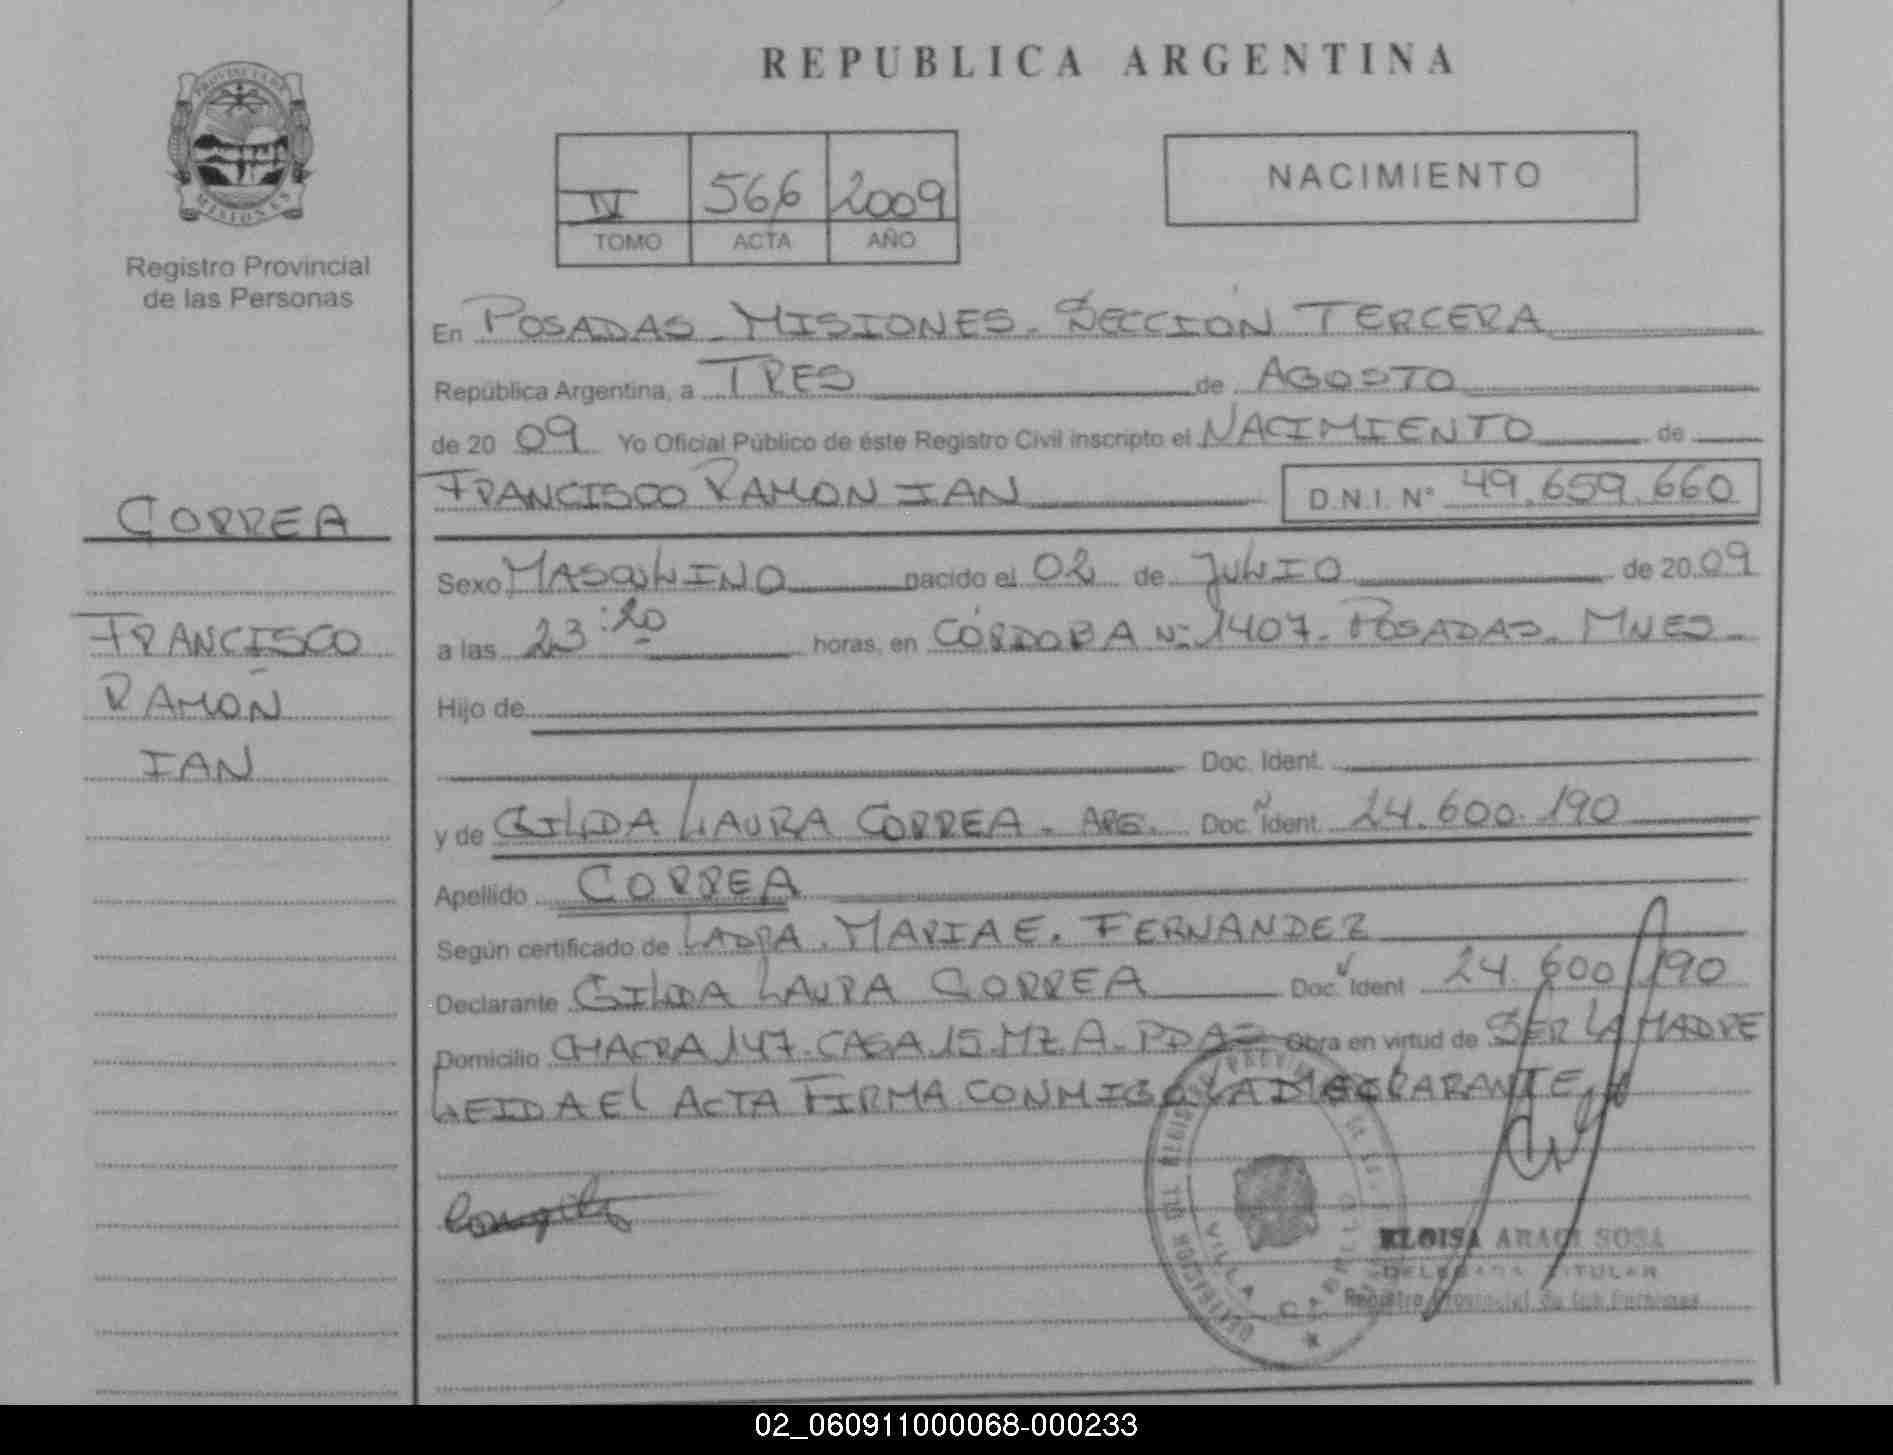 PROVINCIA DE
MISIONES
Registro Provincial
de las Personas
CORREA
FRANCISCO
RAMÓN
IAN
REPUBLICA ARGENTINA
IV 566 2009
TOMO ACTA AÑO
NACIMIENTO
En POSADAS - MISIONES - SECCIÓN TERCERA
República Argentina, a TRES de AGOSTO
de 20 09 Yo Oficial Público de éste Registro Civil inscripto el NACIMIENTO de
FRANCISCO RAMON IAN D.N.I. Nº 49.659.660
Sexo MASCULINO nacido el 02 de JULIO de 20 09
a las 23:20 horas, en CÓRDOBA Nº 1407 - POSADAS - MNES -
Hijo de
Doc. Ident.
y de GILDA LAURA CORREA - ARG. Doc. Ident. 24.600.190
Apellido CORREA
Según certificado de MARIA E. FERNANDEZ
Declarante GILDA LAURA CORREA Doc. Ident. 24.600.190
Domicilio CHACRA 147 - CASA 15 - MZ. A - PDAS Obra en virtud de SER LA MADRE
LEIDA EL ACTA FIRMA CONMIGO LA DECLARANTE
VILLA CABELLO
ELOISA ARACI SOSA
DELEGADA TITULAR
Registro Provincial de las Personas
02_060911000068-000233